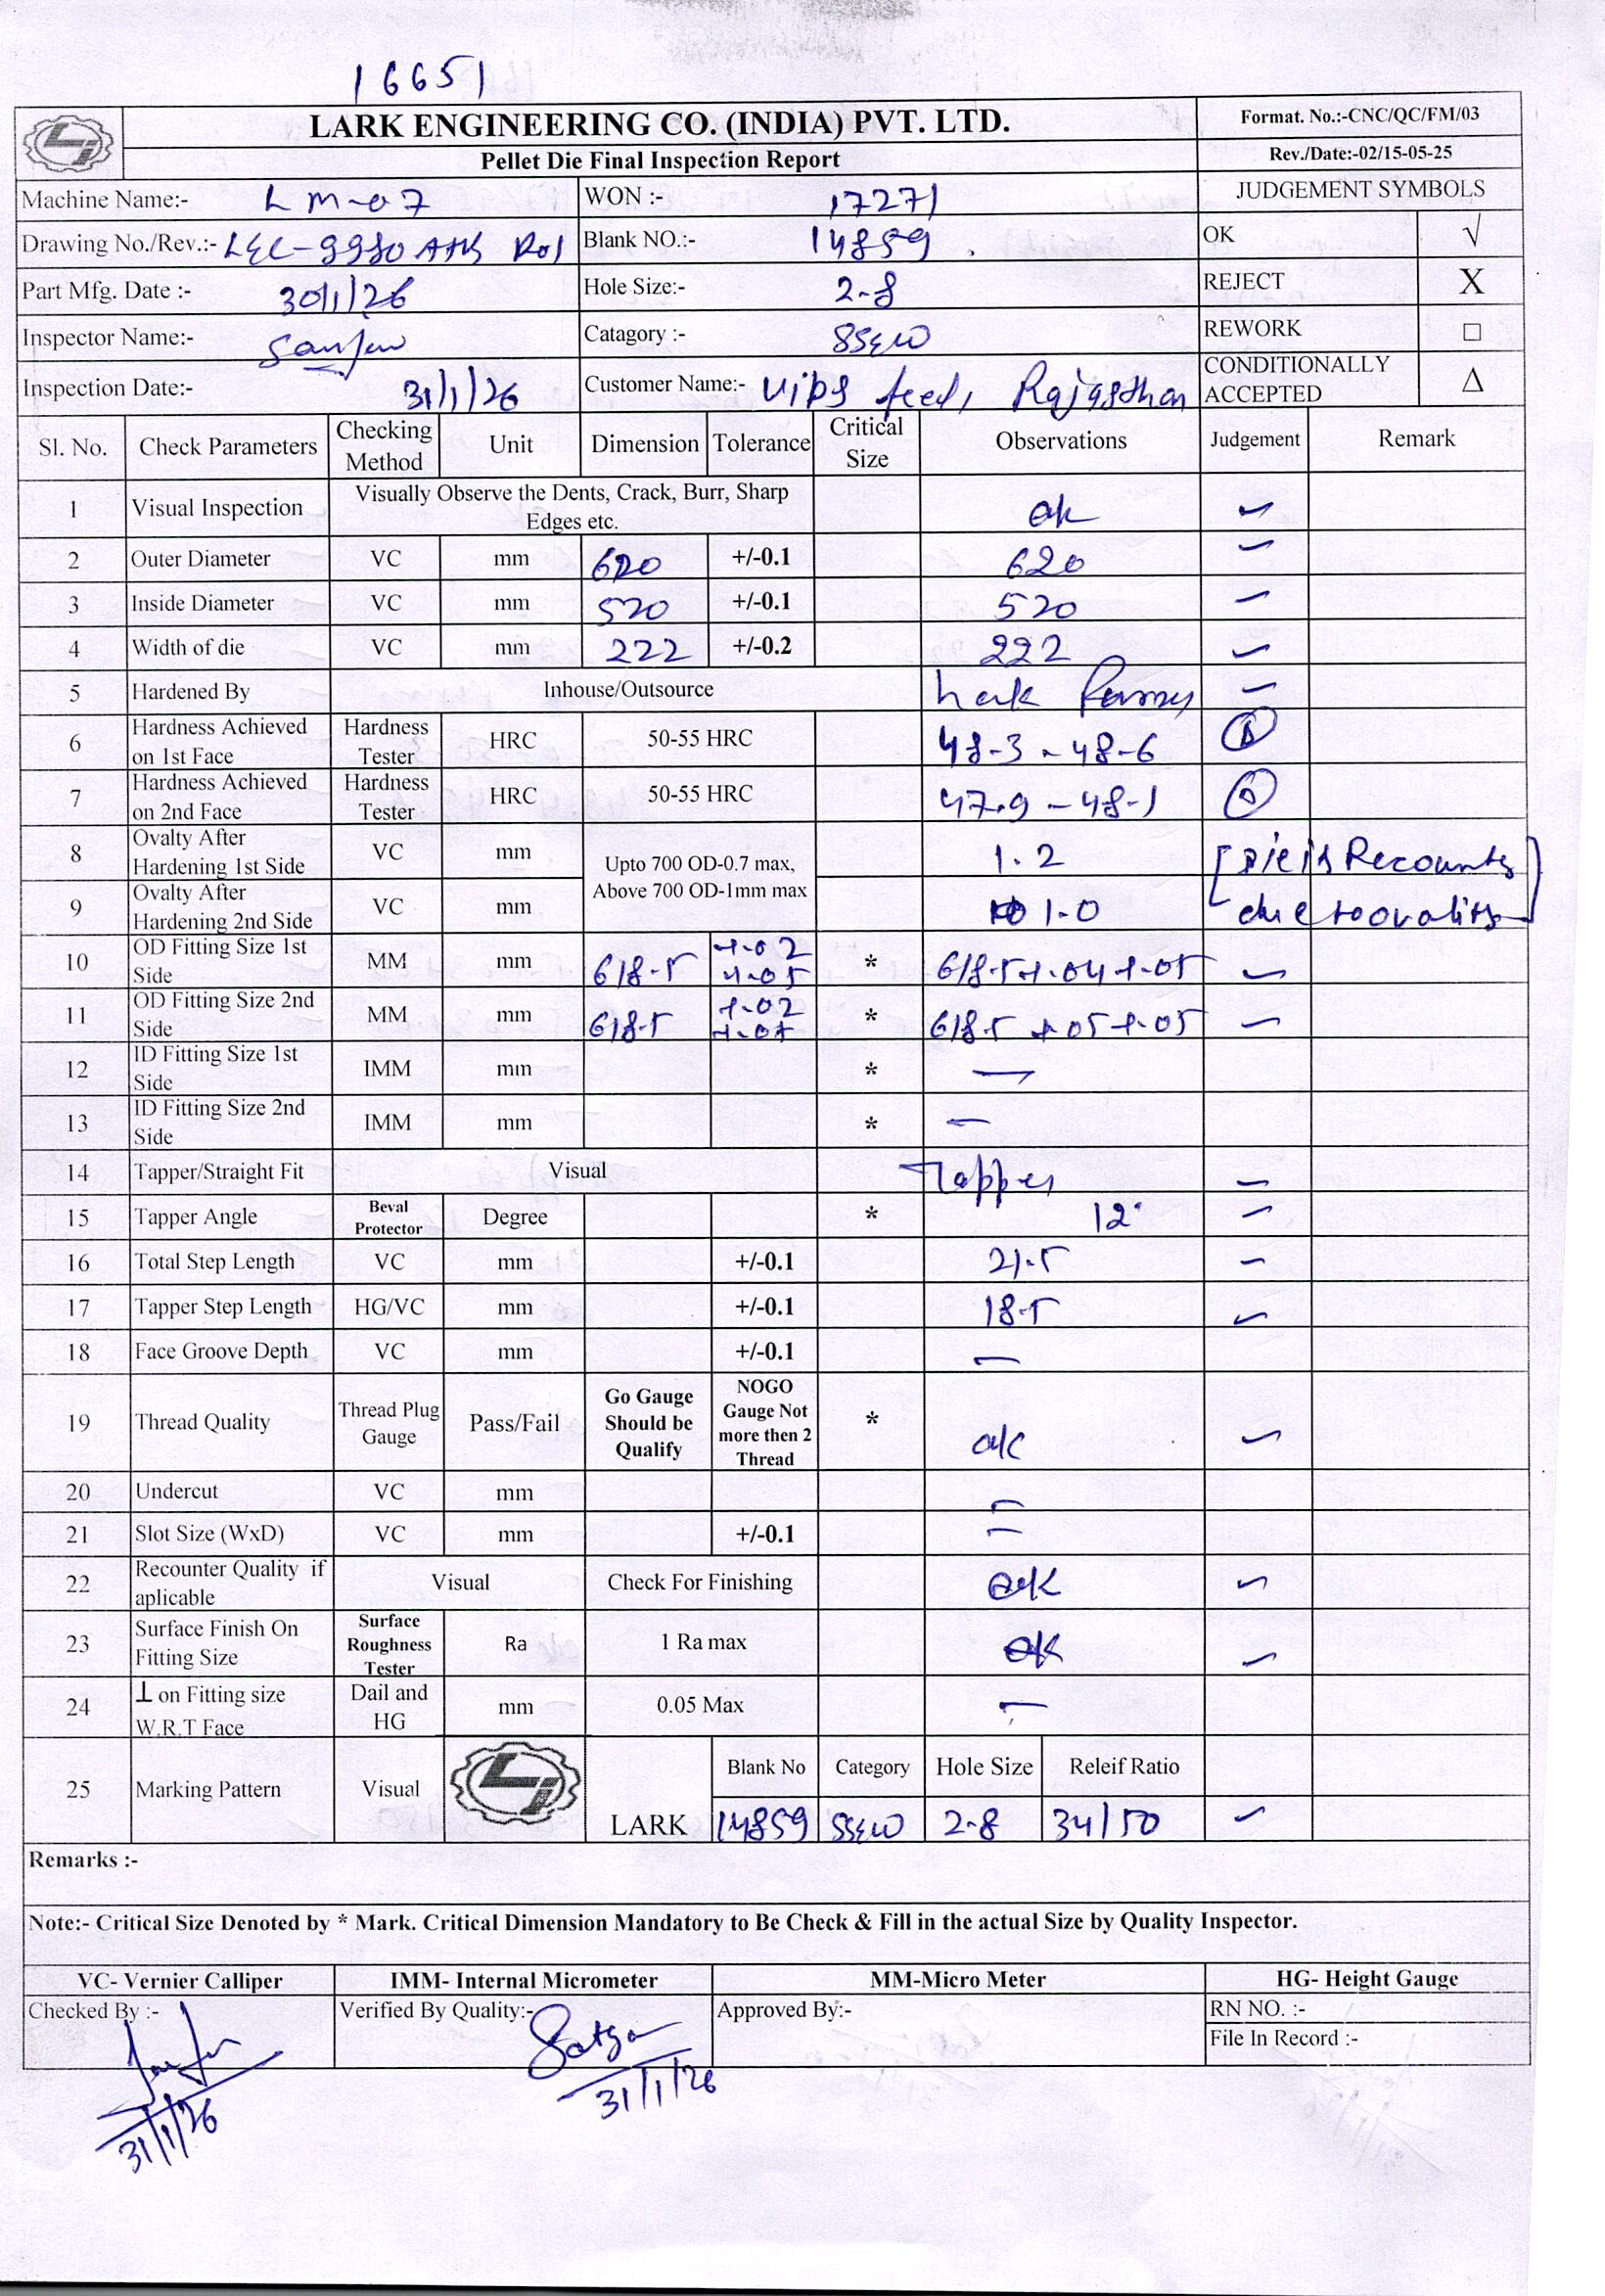 16651
LARK ENGINEERING CO. (INDIA) PVT. LTD.
Format. No.:-CNC/QC/FM/03
Pellet Die Final Inspection Report
Rev./Date:-02/15-05-25
Machine Name:- LM-07 WON :- 17271 JUDGEMENT SYMBOLS
Drawing No./Rev.:- R01 Blank NO.:- 14859 OK √
Part Mfg. Date :- 30/1/26 Hole Size:- 2-8 REJECT X
Inspector Name:- Catagory :- REWORK □
Inspection Date:- 31/1/26 Customer Name:- feed, Rajasthan CONDITIONALLY ACCEPTED Δ
Sl. No. Check Parameters Checking Method Unit Dimension Tolerance Critical Size Observations Judgement Remark
1 Visual Inspection Visually Observe the Dents, Crack, Burr, Sharp Edges etc. ok
2 Outer Diameter VC mm 620 +/-0.1 620
3 Inside Diameter VC mm 520 +/-0.1 520
4 Width of die VC mm 222 +/-0.2 222
5 Hardened By Inhouse/Outsource Lark
6 Hardness Achieved on 1st Face Hardness Tester HRC 50-55 HRC 48-3 - 48-6
7 Hardness Achieved on 2nd Face Hardness Tester HRC 50-55 HRC 47.9 - 48-1
8 Ovalty After Hardening 1st Side VC mm Upto 700 OD-0.7 max, Above 700 OD-1mm max 1.2 [Die is Recounts
9 Ovalty After Hardening 2nd Side VC mm 1-0 due to ovality]
10 OD Fitting Size 1st Side MM mm 618-5 +.02 +.05 * 618-5 +.04 +.05
11 OD Fitting Size 2nd Side MM mm 618-5 +.02 * 618-5 +.05 +.05
12 ID Fitting Size 1st Side IMM mm * —
13 ID Fitting Size 2nd Side IMM mm * —
14 Tapper/Straight Fit Visual Tapper
15 Tapper Angle Beval Protector Degree * 12°
16 Total Step Length VC mm +/-0.1 21.5
17 Tapper Step Length HG/VC mm +/-0.1 18.5
18 Face Groove Depth VC mm +/-0.1 —
19 Thread Quality Thread Plug Gauge Pass/Fail Go Gauge Should be Qualify NOGO Gauge Not more then 2 Thread * ok
20 Undercut VC mm —
21 Slot Size (WxD) VC mm +/-0.1 —
22 Recounter Quality if aplicable Visual Check For Finishing ok
23 Surface Finish On Fitting Size Surface Roughness Tester Ra 1 Ra max ok
24 ⊥ on Fitting size W.R.T Face Dail and HG mm 0.05 Max —
25 Marking Pattern Visual LARK Blank No Category Hole Size Releif Ratio
14859 2-8 34/50
Remarks :-
Note:- Critical Size Denoted by * Mark. Critical Dimension Mandatory to Be Check & Fill in the actual Size by Quality Inspector.
VC- Vernier Calliper IMM- Internal Micrometer MM-Micro Meter HG- Height Gauge
Checked By :- Verified By Quality:- Approved By:- RN NO. :-
File In Record :-
31/1/26
31/1/26